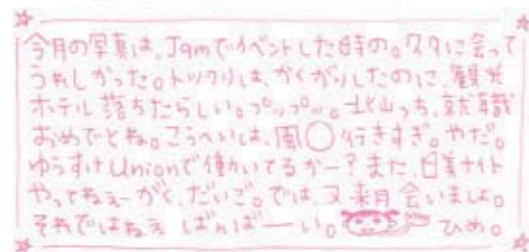 今月の写真は、Jamでイベントした時の。久々に会って
うれしかった。トックリは、がくがりしたのに、観光
ホテル落ちたらしい。プップッ。北山っち、就職
おめでとね。こうへいは、風〇行きすぎ。やだ。
ゆうすけUnionで働いてるかー?また、日美ナイト
やってねぇーがく、だいご。では、又来月会いましょ。
それではねぇ ばんばーい。 ひめ。